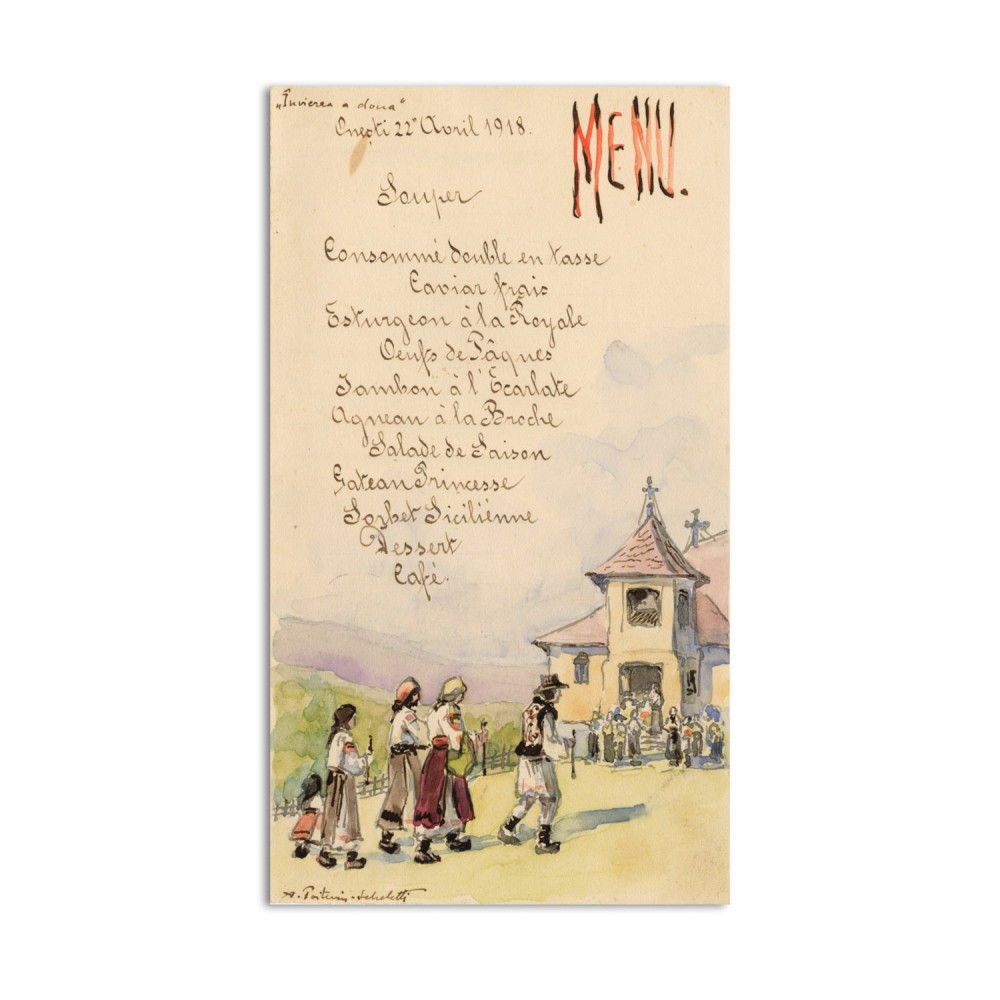 „Învierea a doua"
Onești 22 Avril 1918.
MENU.
Souper
Consommé double en tasse
Caviar frais
Esturgeon à la Royale
Oeufs de Pâques
Jambon à l'Ecarlate
Agneau à la Broche
Salade de Saison
Gateau Princesse
Sorbet Siciliénne
Dessert
Café.
A.